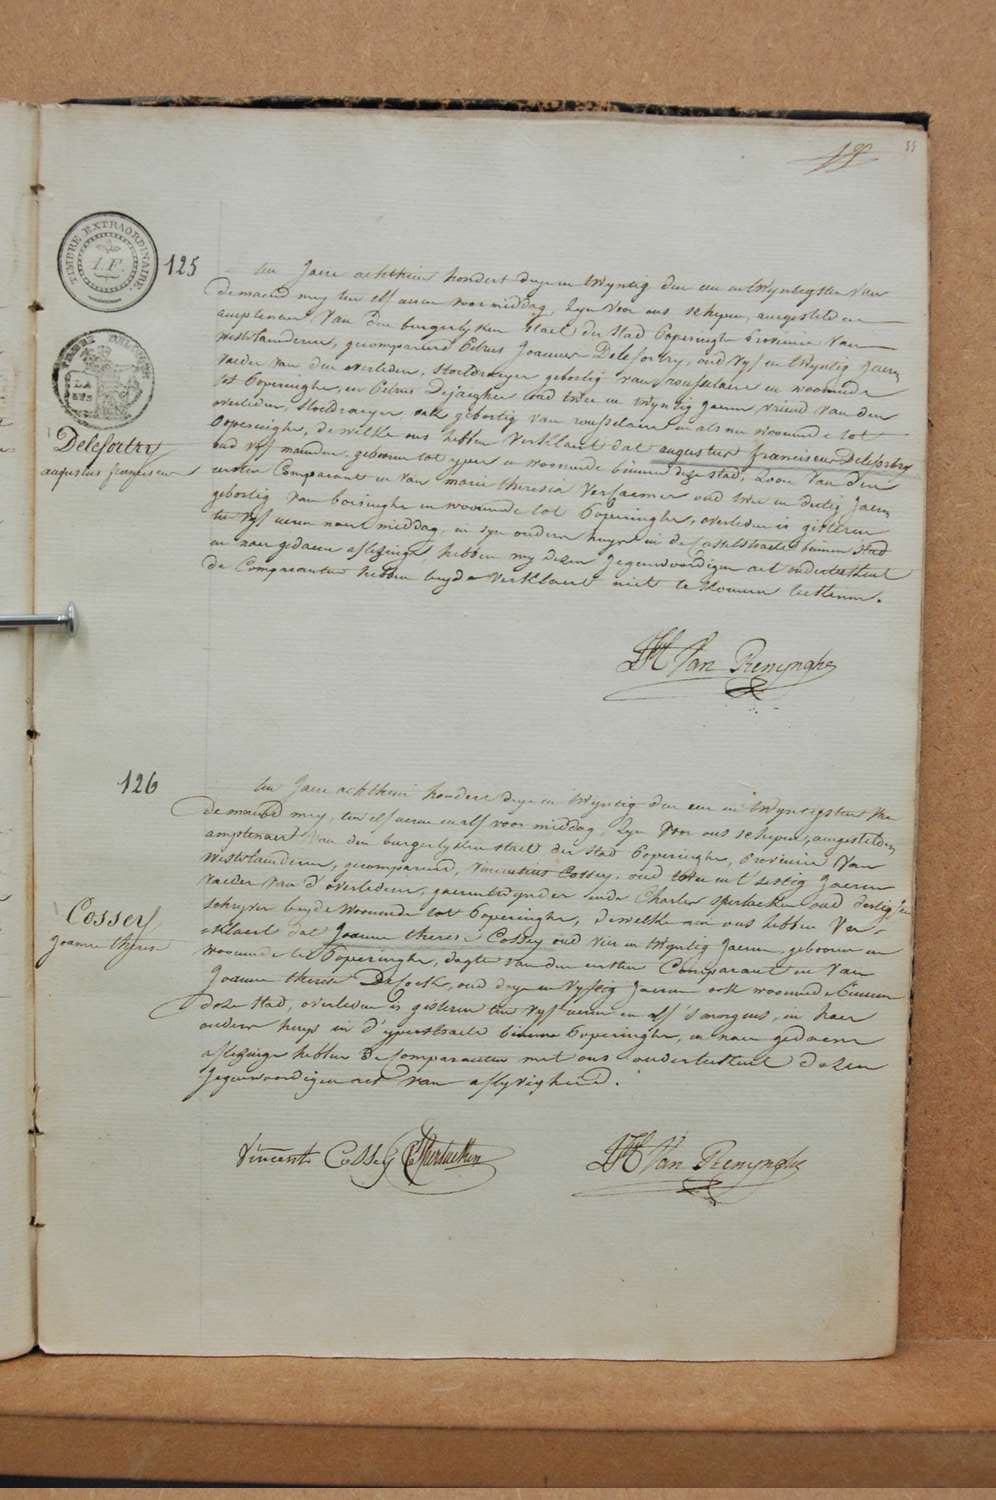 55
TIMBRE EXTRAORDINAIRE
1. F.
125
den Jaere achthien hondert drye en twyntig den een en twyntigsten van
de maend mey ten elf ueren voor middag, zyn voor ons schepen, aengestelden
amptenaer, van den burgerlyken staet der stad Poperinghe provincie van
westvlaenderen, gecompareerd Petrus Joannes Delefortry, oud vyf en twyntig Jaeren
vaeder van den overleden, stoeldraeyer gebortig van rousselaere en woonende
tot Poperinghe, en Petrus Dejaegher oud twee en twyntig Jaeren vriend van den
overleden, stoeldraeyer ook gebortig van rousselaere en als nu woonende tot
Poperinghe, dewelke ons hebben verklaert dat augustus franciscus Delefortry
oud vyf maenden, geboren tot yper en woonende binnen deze stad, zoon van den
eersten Comparant en van marie theresia Verfaemer oud twee en dertig Jaeren
gebortig van boesinghe en woonende tot Poperinghe, overleden is gisteren
ten vyf ueren naer middag, in zyn ouders huys in de Casselstraete binnen stad
en naer gedaene aflezinge, hebben wy dezen Jegenwoordigen act onderteekent
de Comparanten hebben beyde verklaert niet te konnen teekenen.
Delefortry
augustus franciscus
JH Van Renynghe
126
den Jaere achthien hondert drye en twyntig den een en twyntigsten van
de maend mey, ten elf ueren en alf voor middag, zyn voor ons schepen, aengestelden
amptenaer, van den burgerlyken staet der stad Poperinghe, provincie van
westvlaenderen, gecompareerd, vincentius Cossey, oud twee en t'sestig Jaeren
vaeder van d'overledene, gaerentwynder ende Charles Sperlaeken oud dertig Jaeren
schryver beyde woonende tot Poperinghe, dewelke aen ons hebben ver=
=klaert dat Joanne therese Cossey oud vier en twyntig Jaeren, geboren en
woonende te Poperinghe, dogte van den eersten Comparant en van
Joanne therese Decock, oud drye en vyftig Jaeren ook woonende binnen
deze stad, overleden is gisteren ten vyf ueren en alf s'morgens, in haer
ouders huys in d'yperstraete binnen Poperinghe, en naer gedaene
aflezinge hebben de Comparanten met ons onderteekent dezen
Jegenwoordigen act van aflyvigheid.
Cossey
Joanne therese
Vincent Cossey C Sperlaeken
JH Van Renynghe